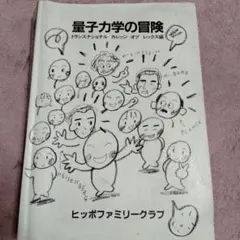 量子力学の冒険
トランスナショナル カレッジ オブ レックス編
ヒッポファミリークラブ